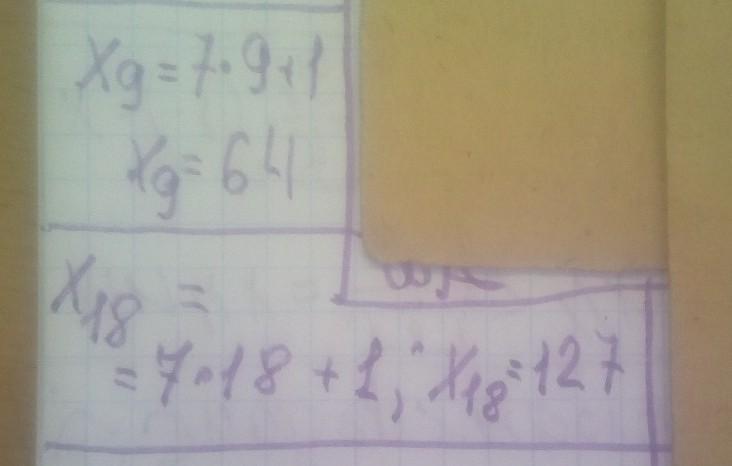 x₉ = 7·9+1
x₉ = 64
x₁₈ =
= 7·18 + 1; x₁₈ = 127